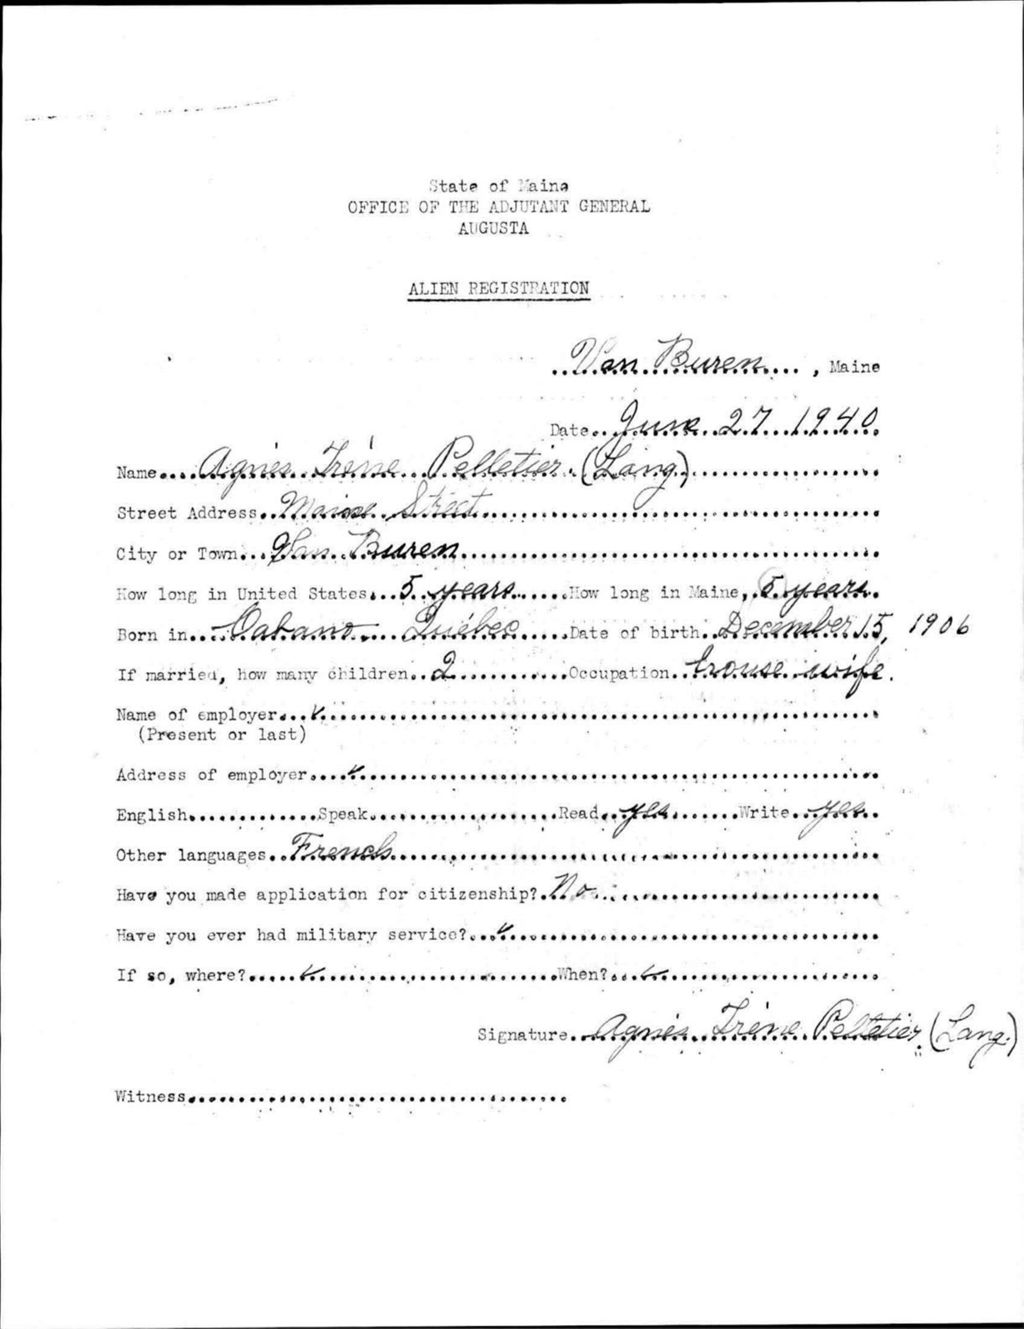 State of Maine
OFFICE OF THE ADJUTANT GENERAL
AUGUSTA
ALIEN REGISTRATION
Van Buren, Maine
Date June 27 1940
Name Agnés Irène Pelletier (Lang)
Street Address Maine Street
City or Town Van Buren
How long in United States 5 years How long in Maine 5 years
Born in Cabano Québec Date of birth December 15, 1906
If married, how many children 2 Occupation House wife.
Name of employer
(Present or last)
Address of employer
English Speak Read yes Write yes
Other languages French
Have you made application for citizenship? No
Have you ever had military service?
If so, where? When?
Signature Agnés Irène Pelletier (Lang.)
Witness